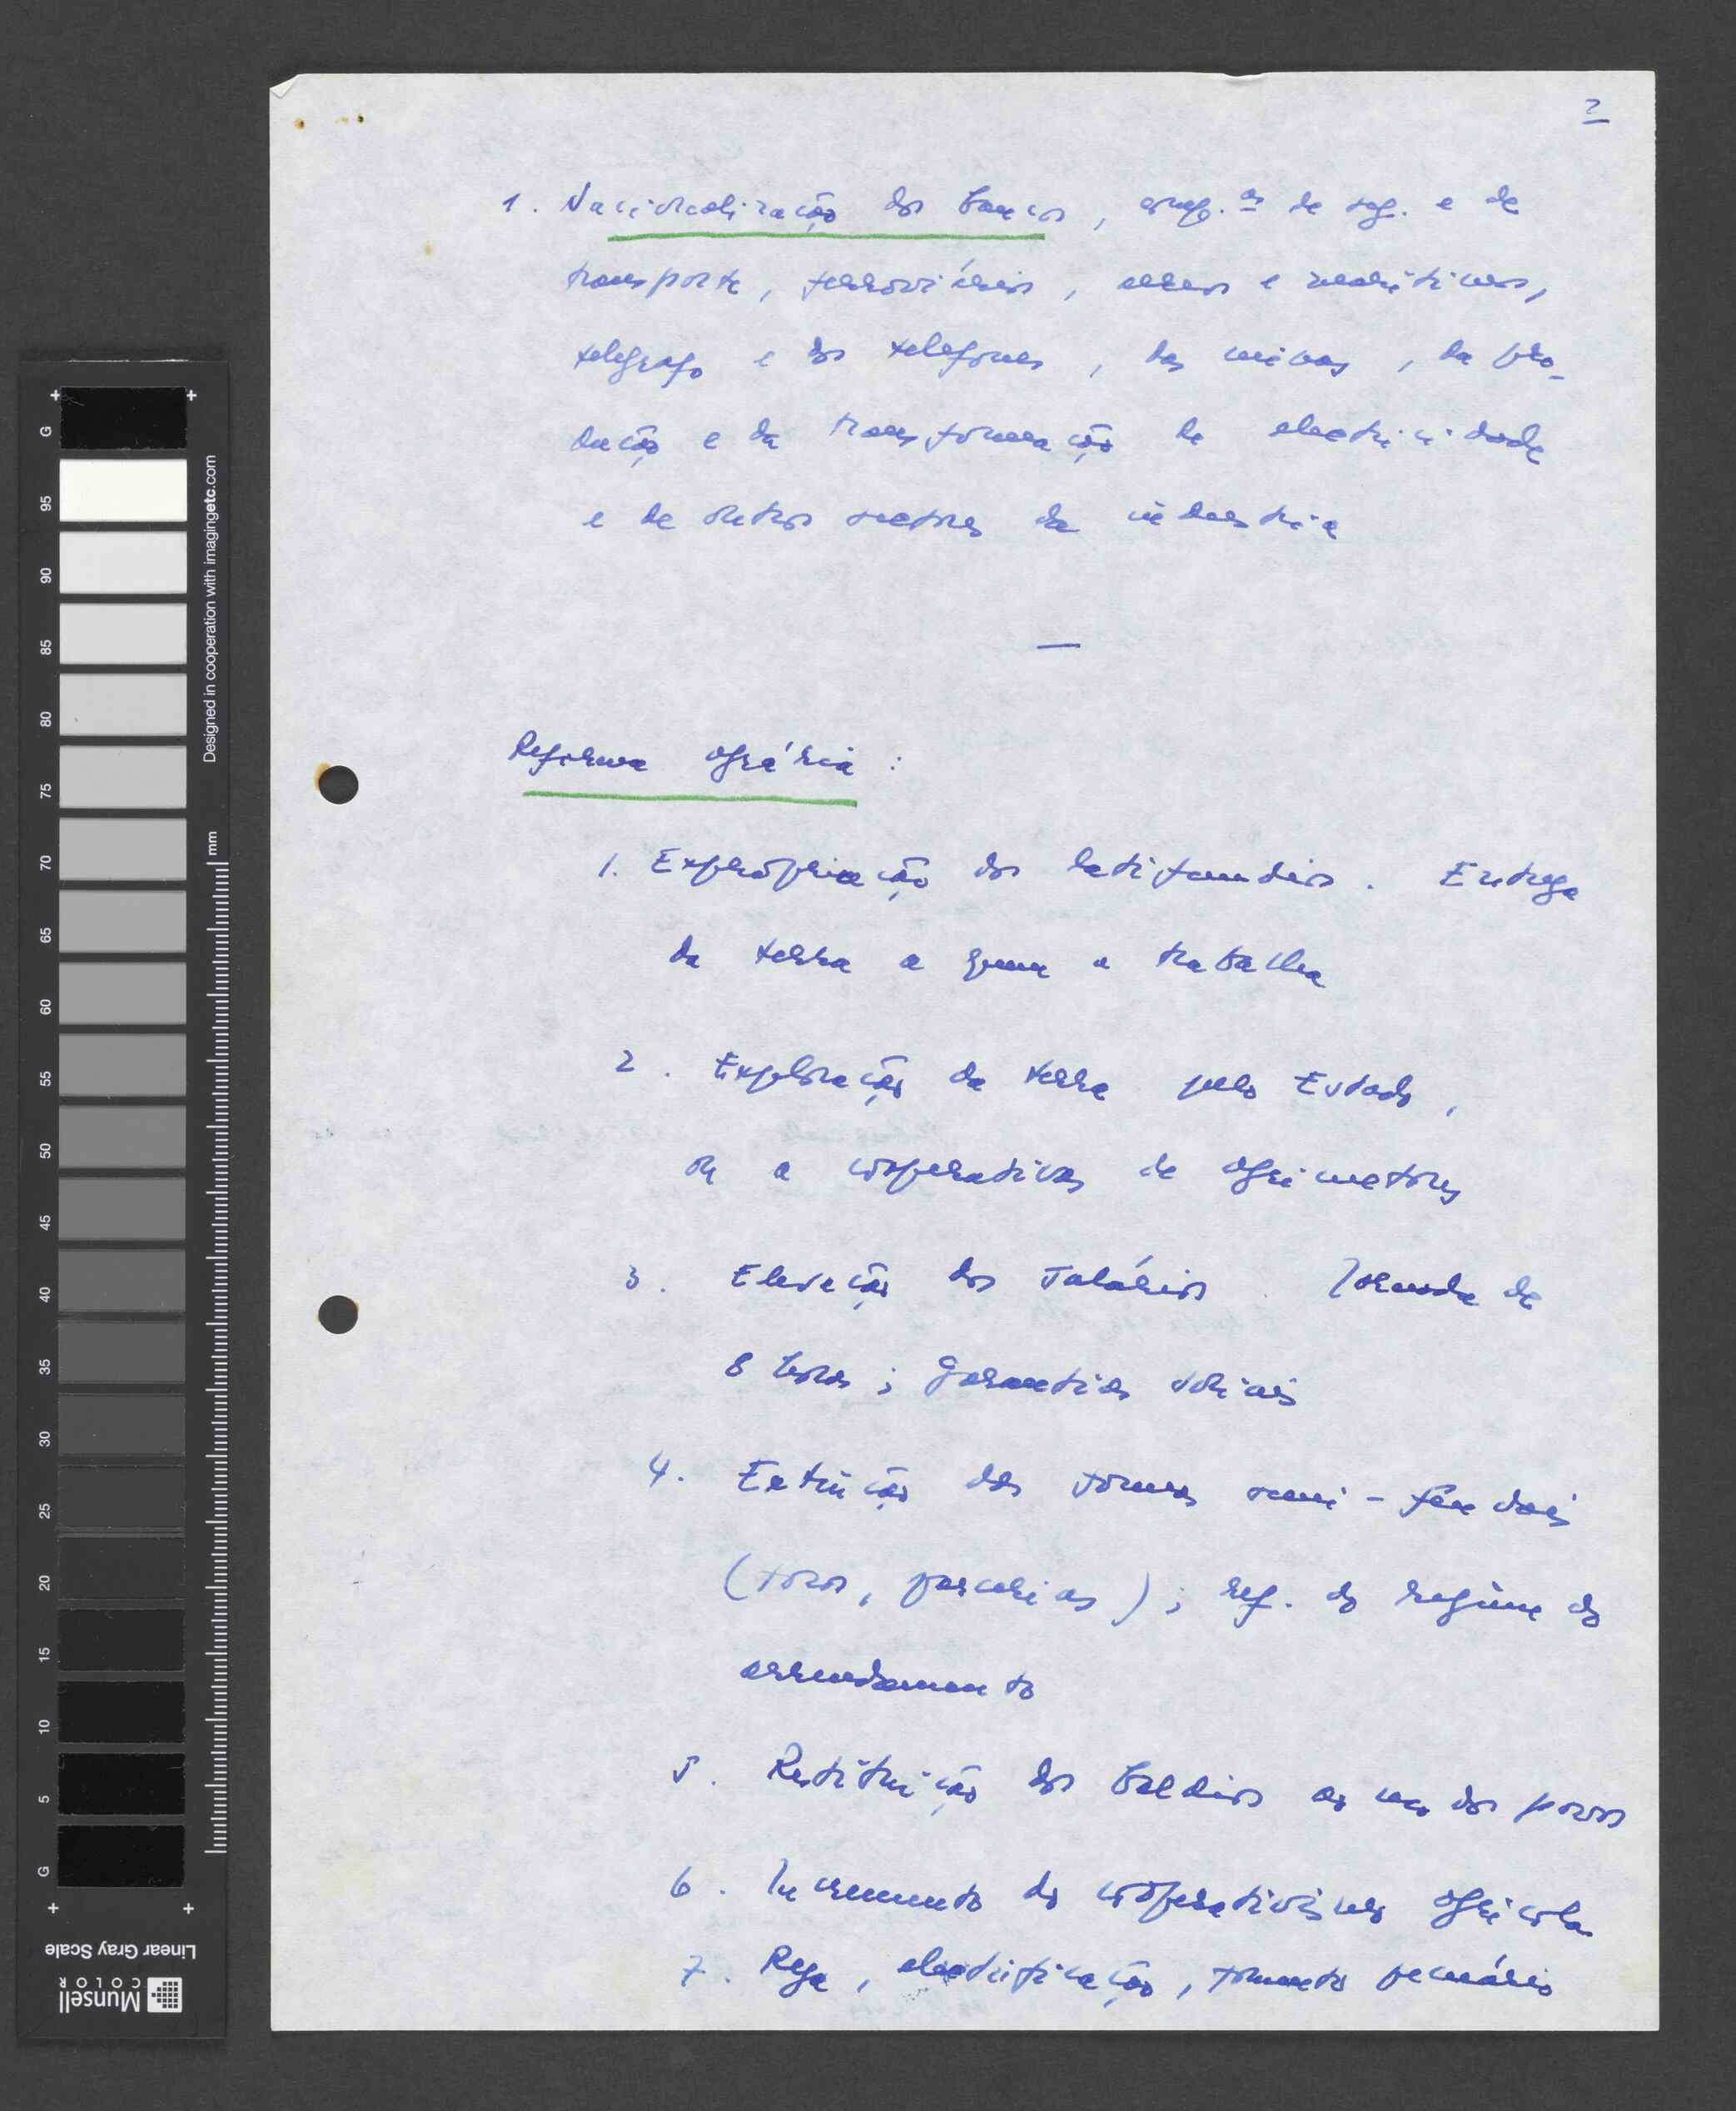 2
1. Nacionalização dos bancos, comp.as de seg. e de
transporte, ferroviários, aéreos e marítimos,
telégrafo e dos telefones, das minas, da pro-
dução e da transformação de electricidade
e de outros sectores da indústria
—
Reforma agrária :
1. Expropriação dos latifundios. Entrega
da terra a quem a trabalha
2. Exploração da terra pelo Estado,
ou a cooperativas de agricultores
3. Elevação dos salários. Jornada de
8 horas ; garantias sociais
4. Extinção das formas semi-feudais
(foros, parcerias) ; ref. do regime do
arrendamento
5. Restituição dos baldios ao uso dos povos
6. Incremento do cooperativismo agrícola
7. Rega, electrificação, fomento pecuário
Designed in cooperation with imagingetc.com
mm
G 95 90 85 80 75 70 65 60 55 50 45 40 35 30 25 20 15 10 5 G
Linear Gray Scale
Munsell
COLOR